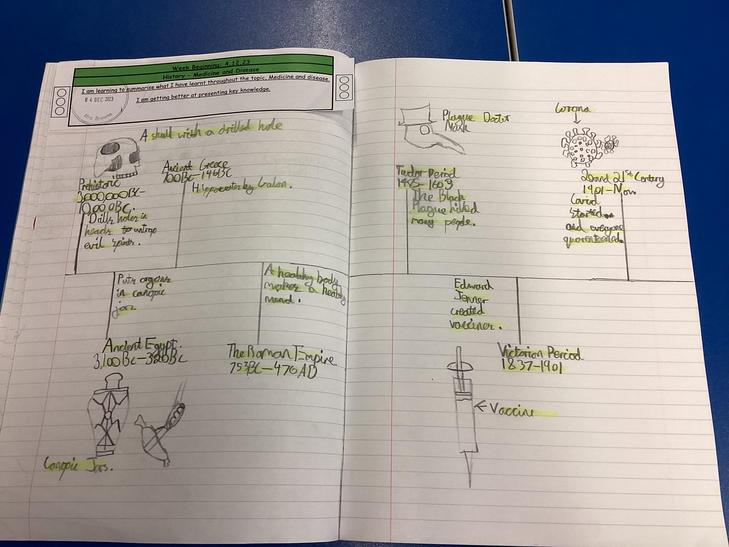 Week Beginning: 4.12.23
History - Medicine and Disease
I am learning to summarise what I have learnt throughout the topic, Medicine and disease.
I am getting better at presenting key knowledge.
04 DEC 2023
A skull with a drilled hole
Prehistoric
3,000,000BC-
10,000BC.
Drills holes in
heads to
evil spirits.
Ancient Greece
700BC-146BC
Hippocrates by Galen.
Puts organs
in canopic
jars
Ancient Egypt.
3,100BC-
A healthy body
makes a healthy
mind.
The Roman Empire
753BC-476AD
Canopic Jars.
Plague Doctor
Mask
Tudor Period
1485-1603
The Black
Plague killed
many people.
Corona
20 and 21st Century
1901-Now.
Covid
started
and everyone
quarantined.
Edward
Jenner
created
vaccines.
Victorian Period
1837-1901
Vaccine